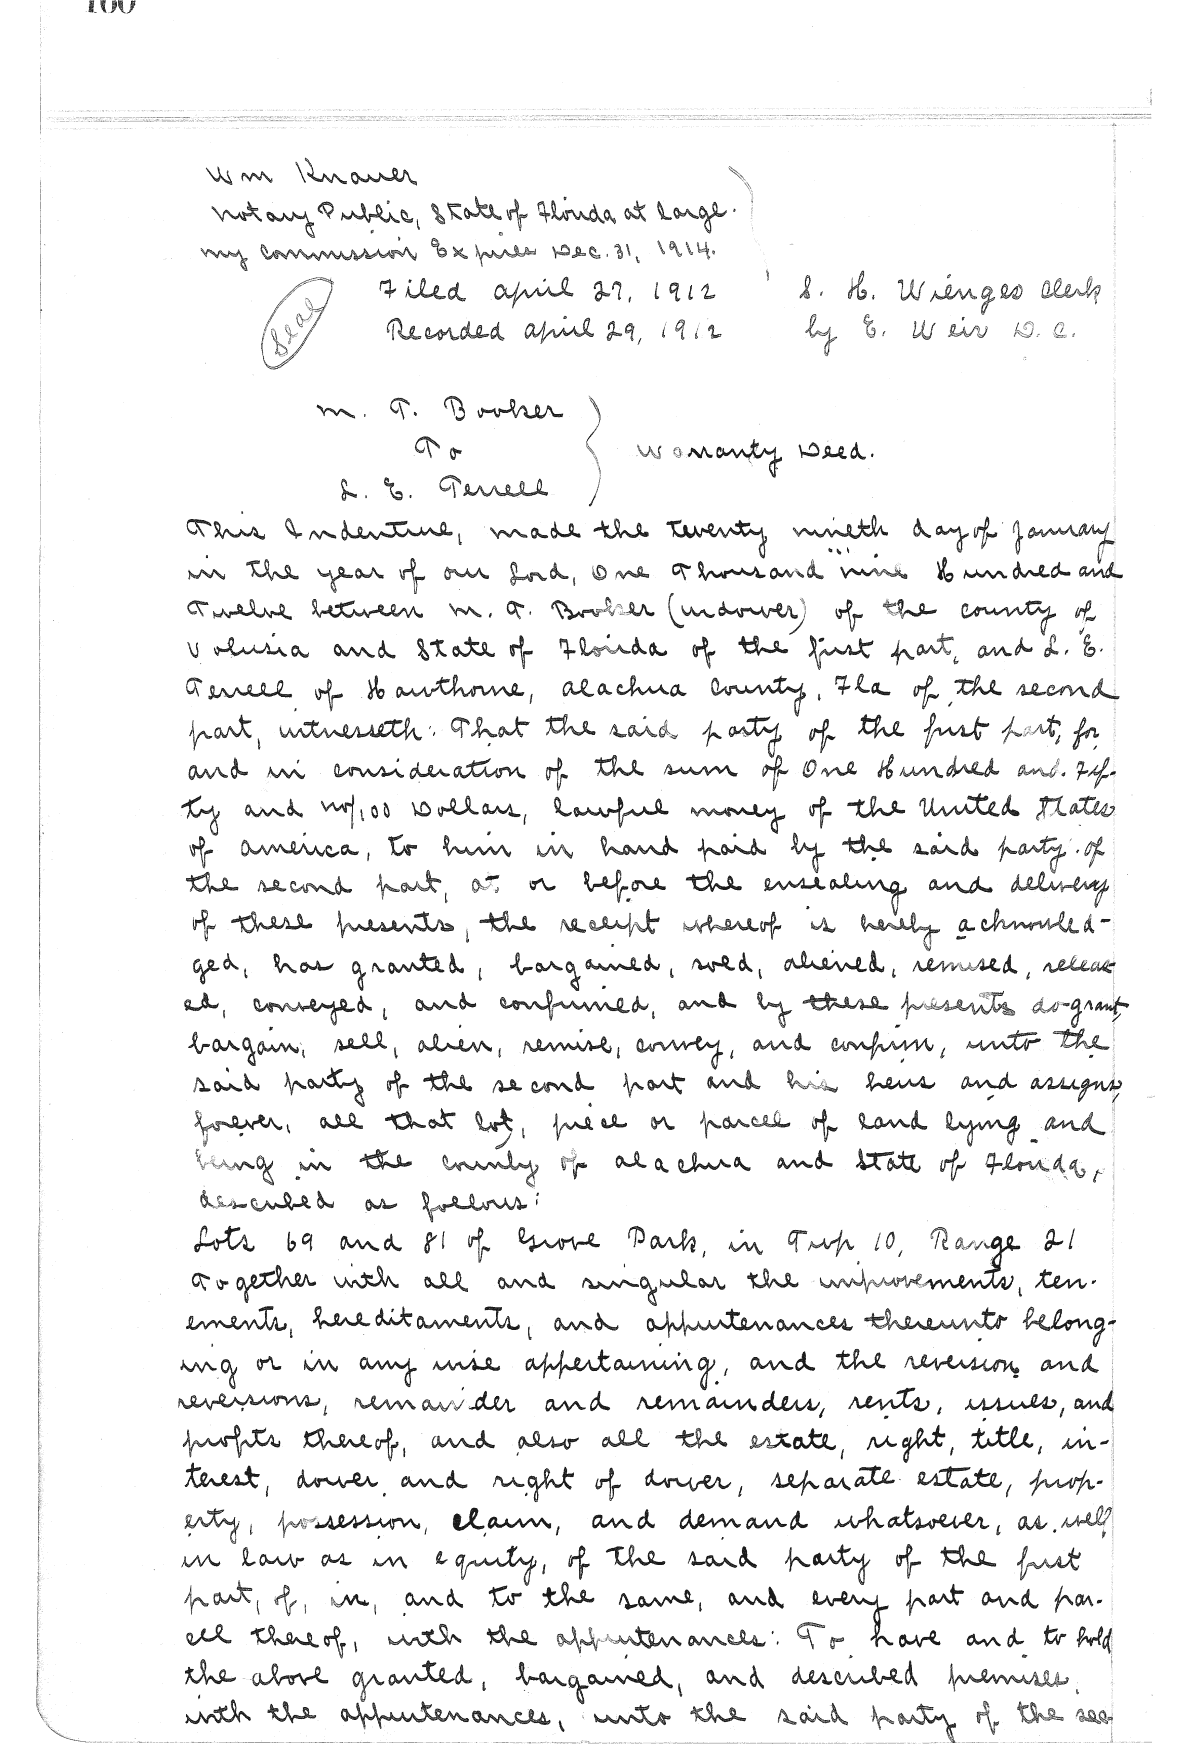 Wm Knauer
Notary Public, State of Florida at large.
my commission Expires Dec. 31, 1914.
Filed april 27, 1912 S. H. Wienges Clerk
Seal
Recorded april 29, 1912 by E. Weir D. C.
M. T. Booker
To
Warranty Deed.
L. E. Terrell
This Indenture, made the twenty nineth day of January
in the year of our Lord, One Thousand nine Hundred and
Twelve between M. T. Booker (widower) of the county of
Volusia and State of Florida of the first part, and L. E.
Terrell of Hawthorne, Alachua County, Fla of the second
part, witnesseth: That the said party of the first part, for
and in consideration of the sum of One Hundred and Fif-
ty and no/100 Dollars, lawful money of the United States
of america, to him in hand paid by the said party of
the second part, at or before the ensealing and delivery
of these presents, the receipt whereof is hereby acknowled-
ged, has granted, bargained, sold, aliened, remised, releas-
ed, conveyed, and confirmed, and by these presents do grant,
bargain, sell, alien, remise, convey, and confirm, unto the
said party of the second part and his heirs and assigns,
forever, all that lot, piece or parcel of land lying and
being in the county of Alachua and State of Florida,
described as follows:
Lots 69 and 81 of Grove Park, in Twp 10, Range 21
Together with all and singular the improvements, ten-
ements, hereditaments, and appurtenances thereunto belong-
ing or in any wise appertaining, and the reversion and
reversions, remainder and remainders, rents, issues, and
profits thereof, and also all the estate, right, title, in-
terest, dower and right of dower, separate estate, prop-
erty, possession, claim, and demand whatsover, as well
in law as in equity, of the said party of the first
part, of, in, and to the same, and every part and par-
cel thereof, with the appurtenances: To have and to hold
the above granted, bargained, and described premises,
with the appurtenances, unto the said party of the sec-